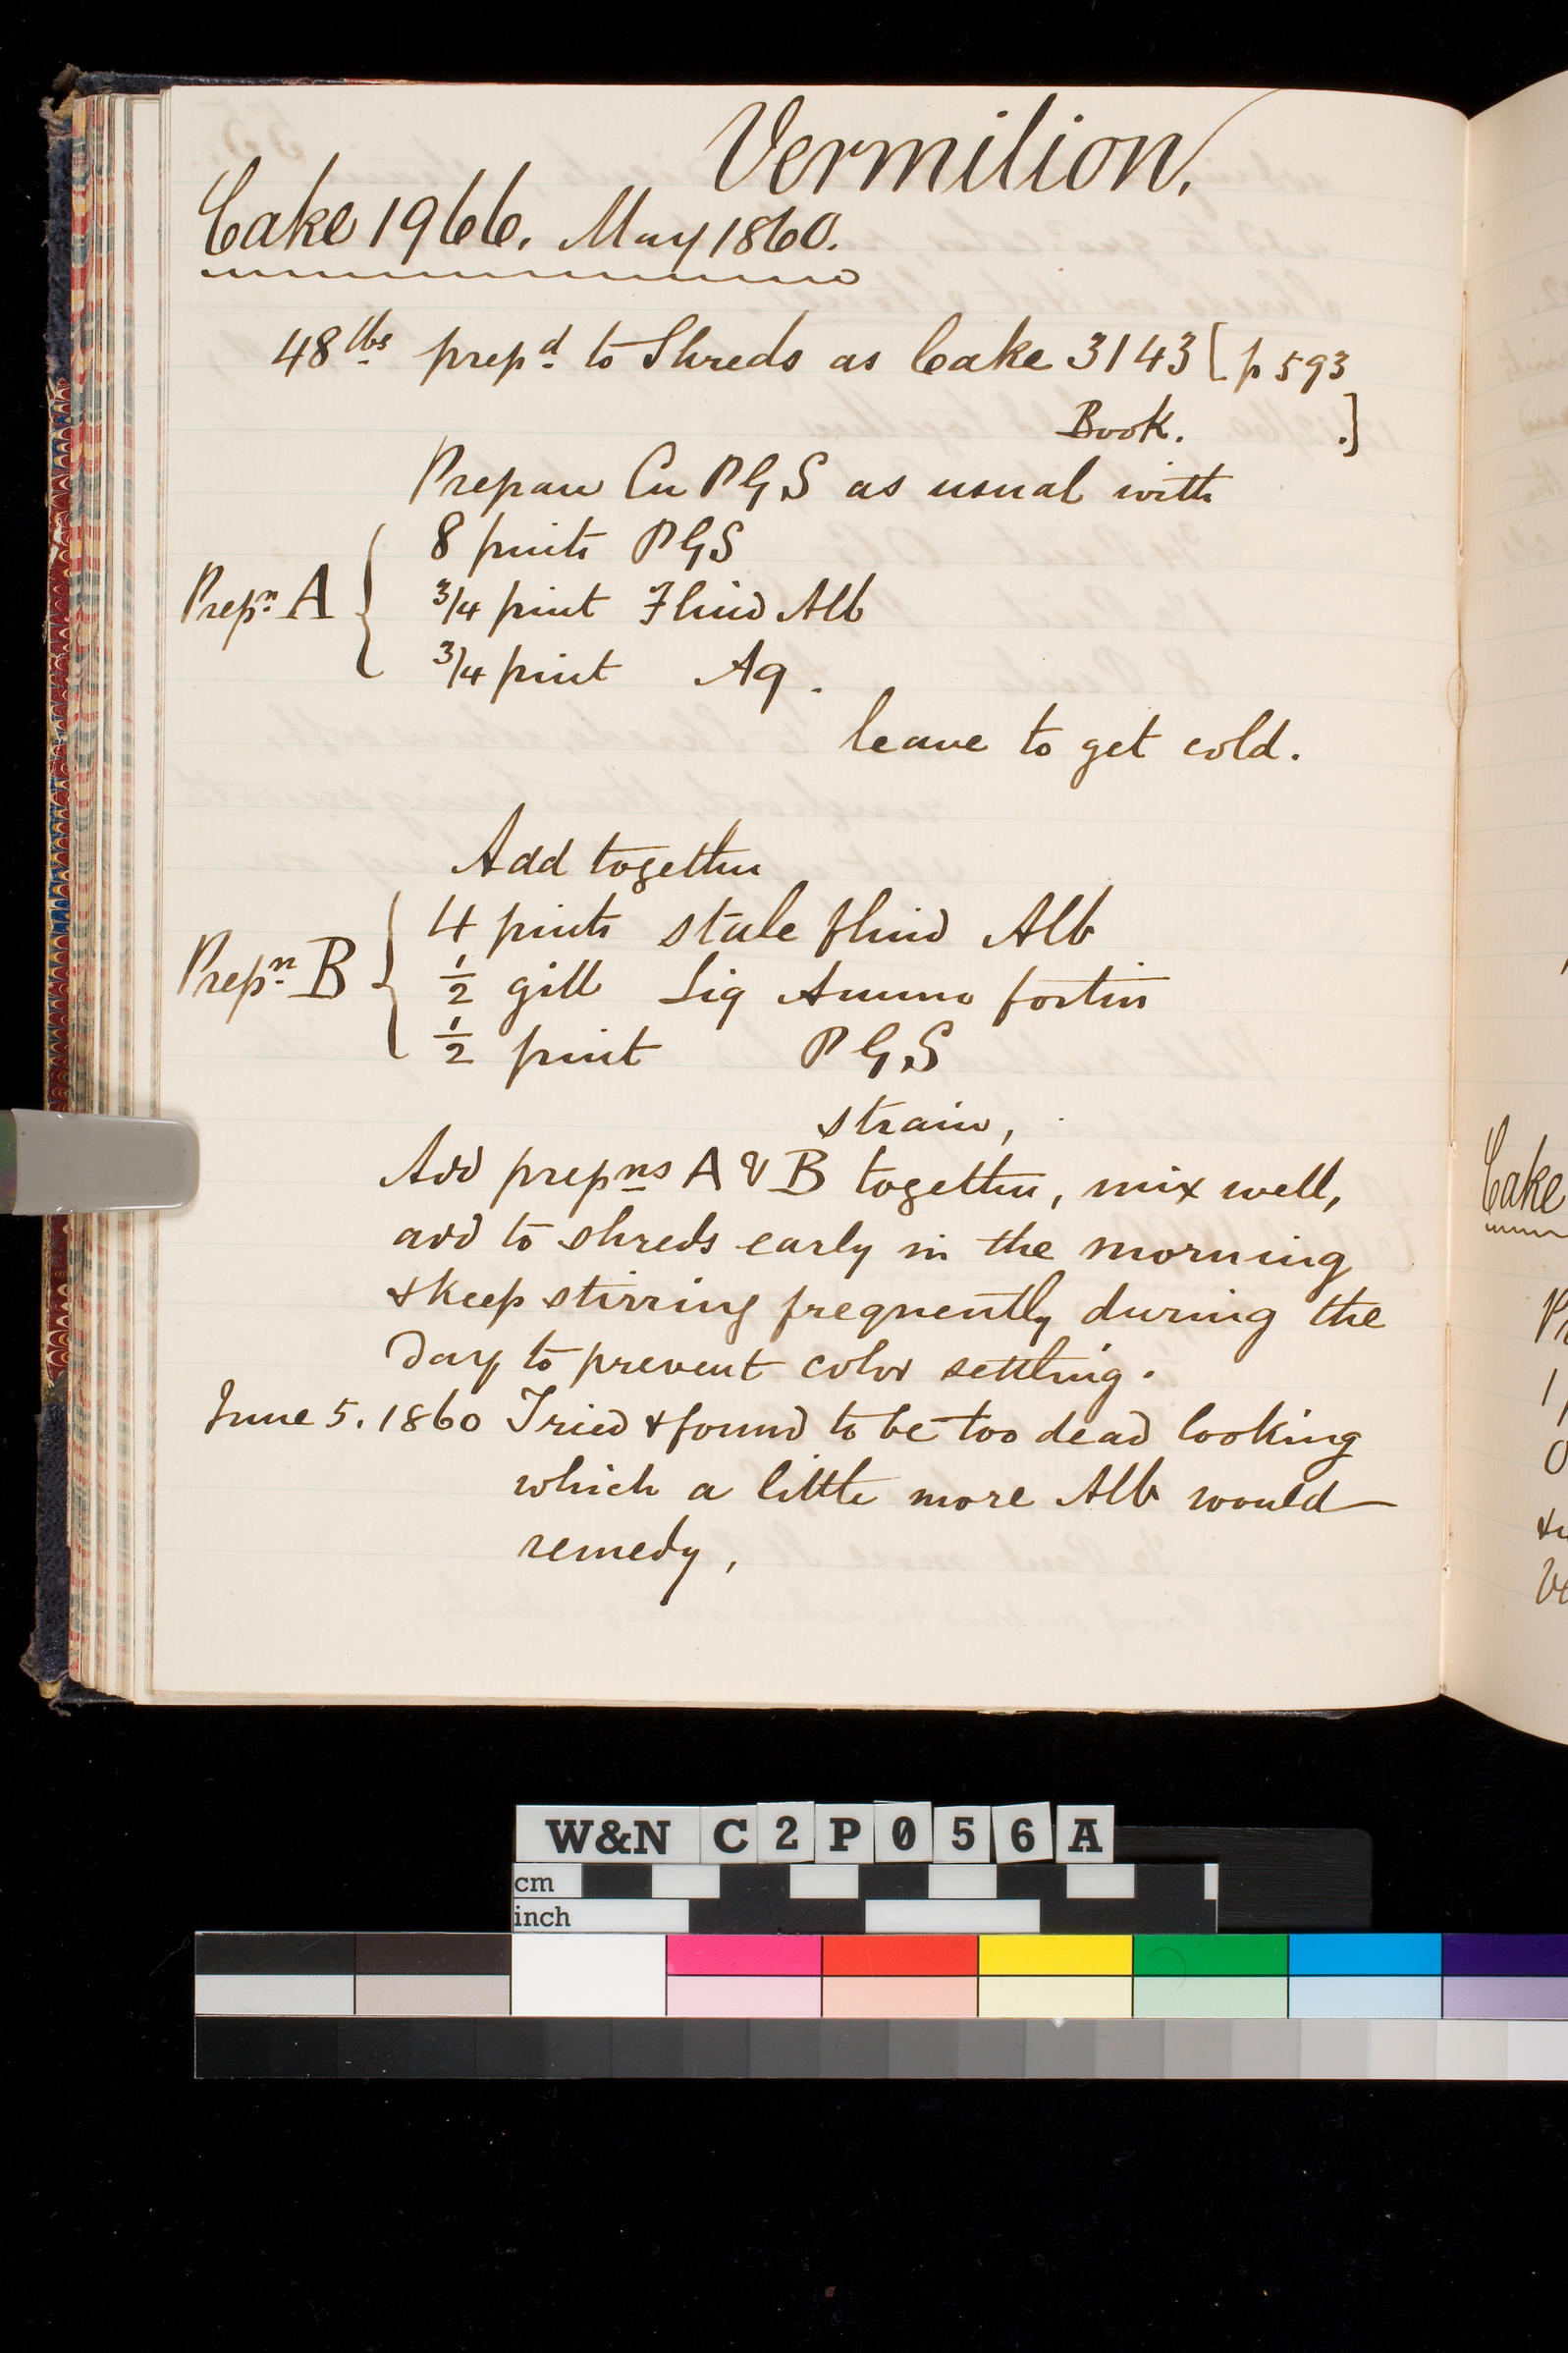 Vermilion.
Cake 1966. May 1860.
48 lbs prepd to Shreds as Cake 3143 [p 593
Book. .]
Prepare Cu PGS as usual with
8 pints PGS
Prepn A { 3/4 pint Fluid Alb
3/4 pint Aq.
leave to get cold.
Add together
4 pints stale fluid Alb
Prepn B { 1/2 gill Liq Ammo fortis
1/2 pint PGS
strain,
Add prepns A & B together, mix well,
add to shreds early in the morning
& keep stirring frequently during the
Day to prevent color settling.
June 5. 1860 Tried & found to be too dead looking
which a little more Alb would
remedy,
Cake
W&N C2P056A
cm
inch